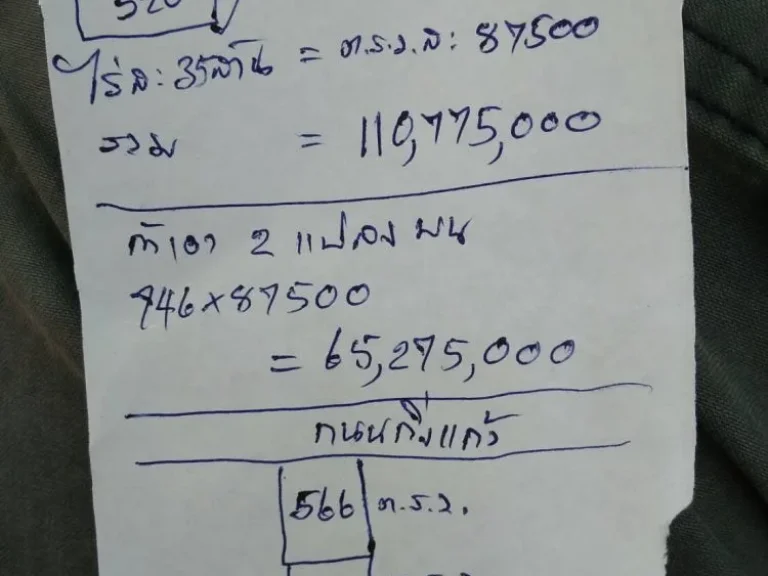 520
ไร่ละ 35ล้าน = ต.ร.ว.ละ 87500
รวม = 110,775,000
ถ้าเอา 2 แปลง บน
746×87500
= 65,275,000
ถนนกิ่งแก้ว
566 ต.ร.ว.